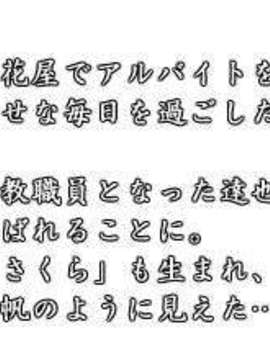 花屋でアルバイトを
せな毎日を過ごした
教職員となった達也
ばれることに。
さくら」も生まれ、
帆のように見えた…